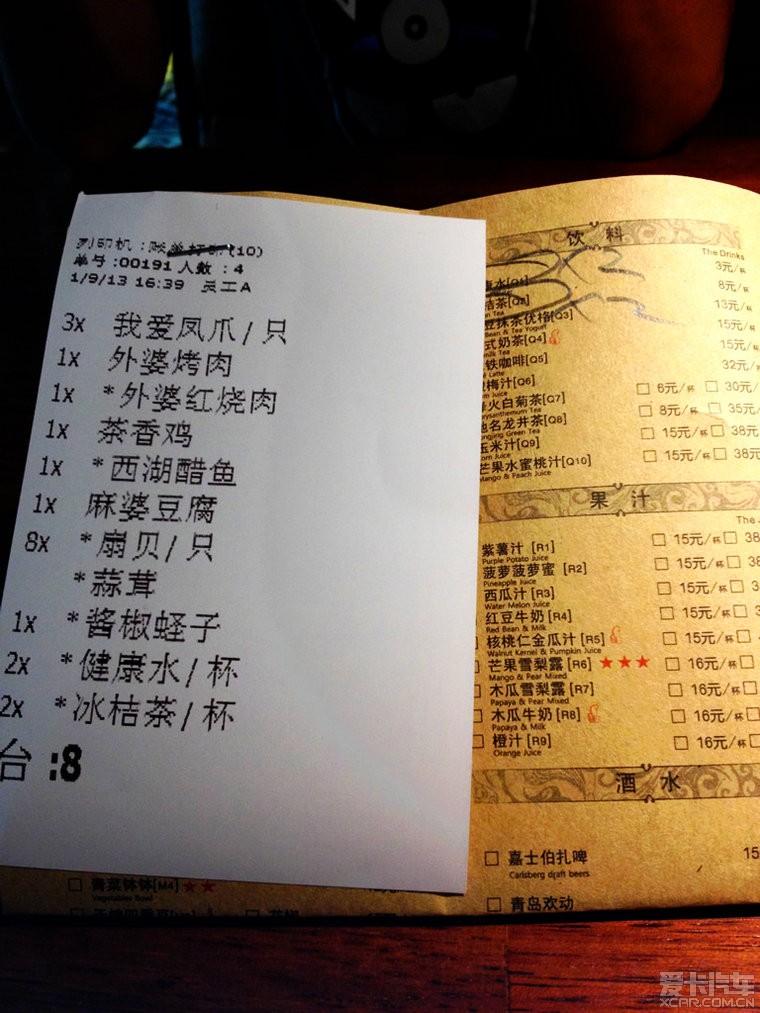 列印机:账单打印(10)
单号:00191 人数 :4
1/9/13 16:39 员工A
3x 我爱凤爪/只
1x 外婆烤肉
1x *外婆红烧肉
1x 茶香鸡
1x *西湖醋鱼
1x 麻婆豆腐
8x *扇贝/只
*蒜茸
1x *酱椒蛏子
2x *健康水/杯
2x *冰桔茶/杯
台 :8
青菜钵钵[M4]★★
Vegetables Bowl
饮 料
The Drinks
康水[Q1] 3元/杯
桔茶[Q2] 8元/杯
豆抹茶优格[Q3] 13元/杯
Bean & Tea Yogurt
式奶茶[Q4] 15元/杯
milk Tea
铁咖啡[Q5] 15元/杯
Latte
梅汁[Q6] 32元/杯
火白菊茶[Q7] 6元/杯 30元/
Chrysanthemum Tea
名龙井茶[Q8] 8元/杯 35元/
Longjing Green Tea
玉米汁[Q9] 15元/杯 38元
Corn Juice
芒果水蜜桃汁[Q10] 15元/杯 38元
Mango & Peach Juice
果 汁
The
紫薯汁 [R1] 15元/杯 38
Purple Potato Juice
菠萝菠萝蜜 [R2] 15元/杯 38
Pineapple Juice
西瓜汁 [R3] 15元/杯 3
Water Melon Juice
红豆牛奶 [R4] 15元/杯 3
Red Bean & Milk
核桃仁金瓜汁 [R5] 15元/杯
Walnut Kernel & Pumpkin Juice
芒果雪梨露 [R6] ★★★ 16元/杯
Mango & Pear Mixed
木瓜雪梨露 [R7] 16元/杯
Papaya & Pear Mixed
木瓜牛奶 [R8] 16元/杯
Papaya & Milk
橙汁 [R9] 16元/杯
Orange Juice
酒 水
嘉士伯扎啤 15
Carlsberg draft beers
青岛欢动
爱卡汽车
XCAR.COM.CN